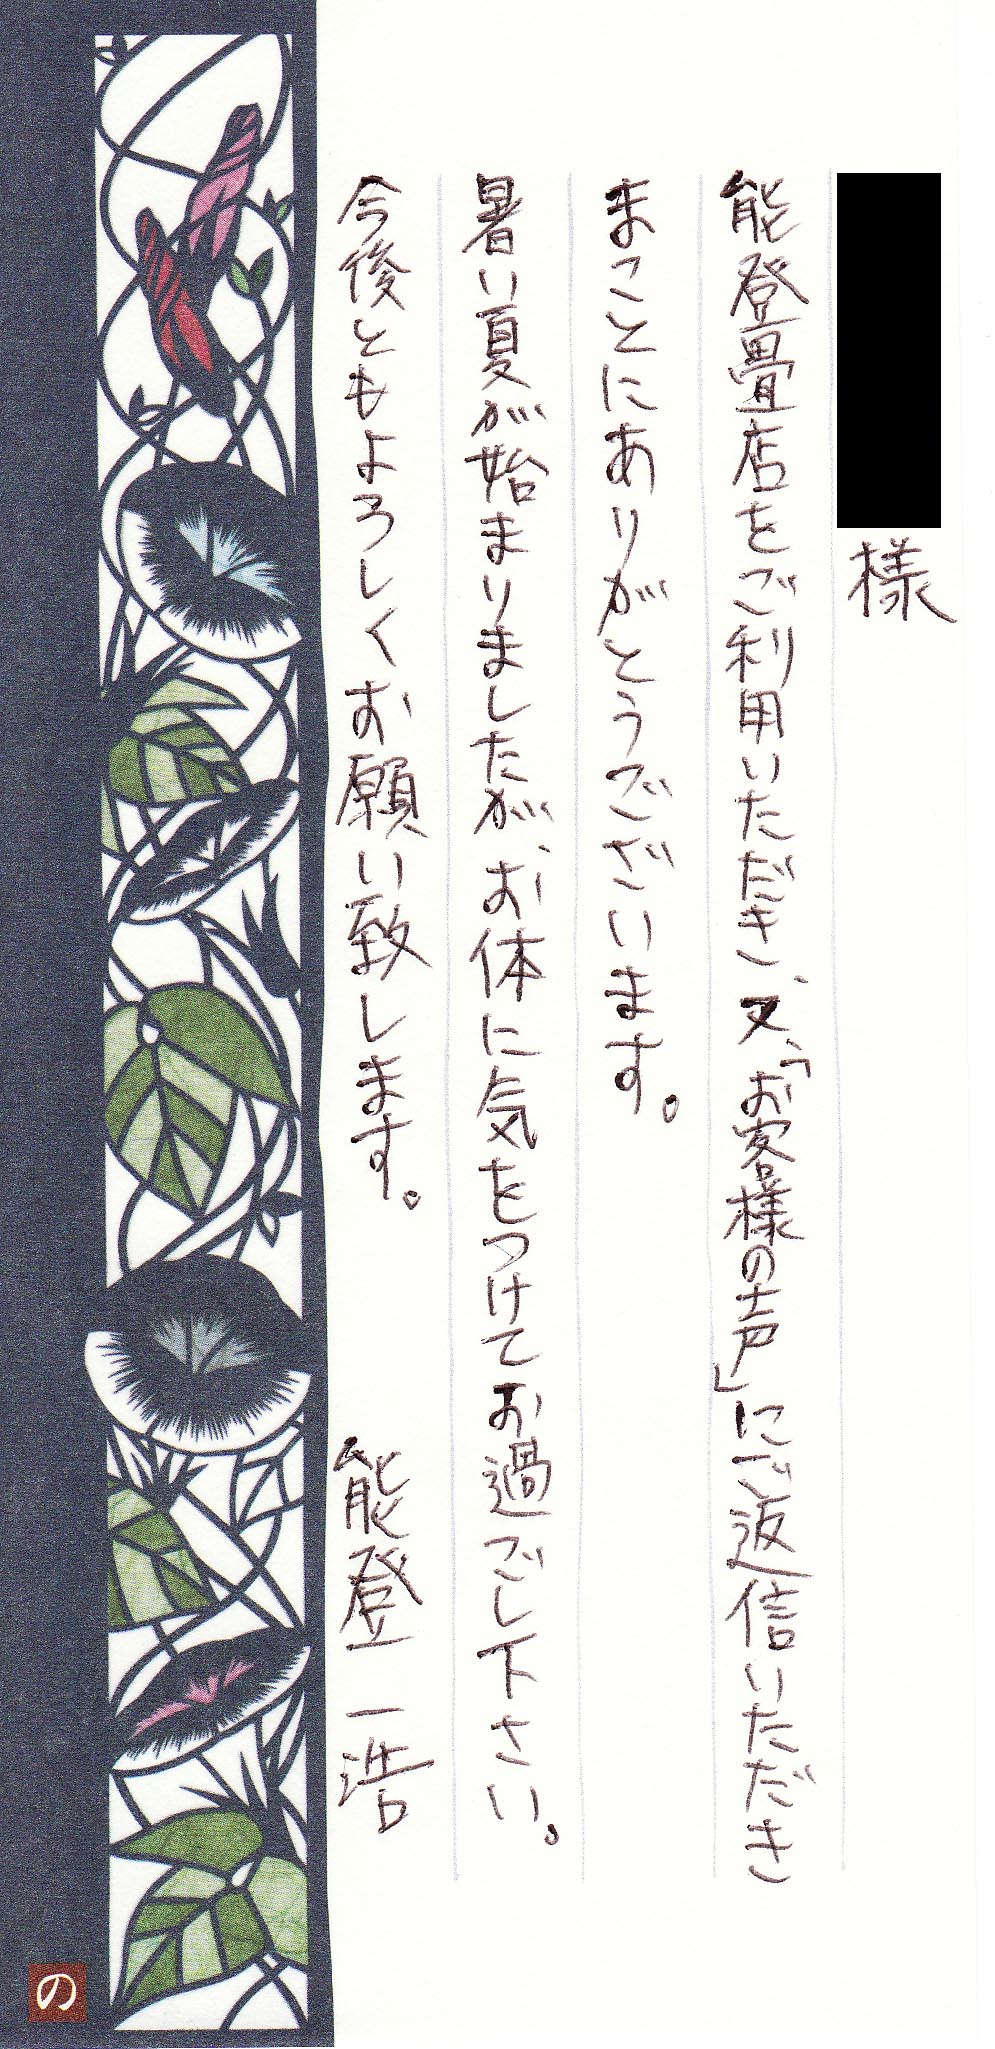 様
能登畳店をご利用いただき、又、「お客様の声」にご返信いただき
まことにありがとうございます。
暑い夏が始まりましたが、お体に気をつけてお過ごし下さい。
今後ともよろしくお願い致します。
能登 一浩
の